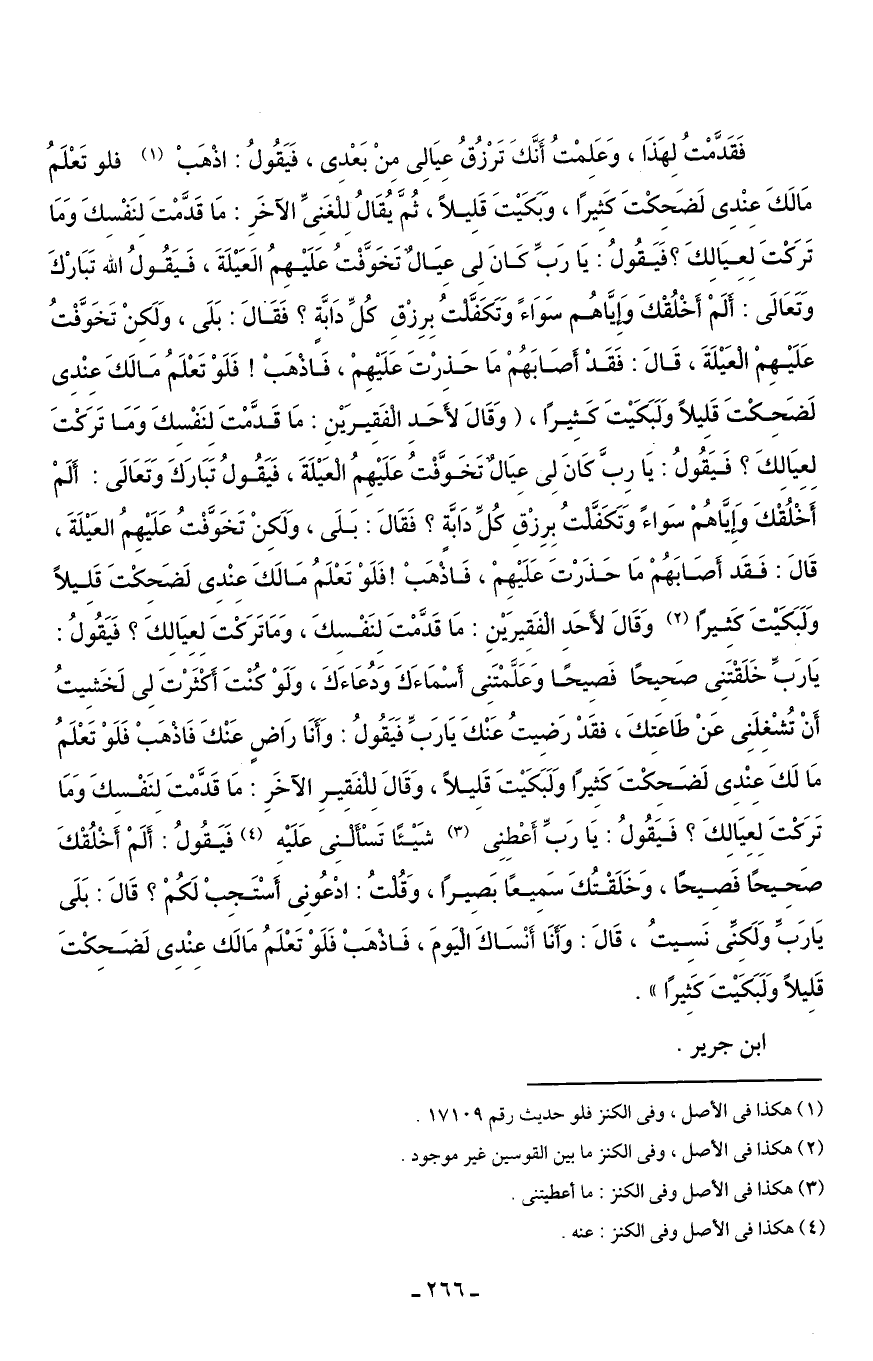 فَقَدَّمْتُ لِهَذَا ، وَعَلِمْتُ أَنَّكَ تَرْزُقُ عِيَالِى مِنْ بَعْدِى ، فَيَقُولُ : اذْهَبْ (١) فلو تَعْلَمُ
مَالَكَ عِنْدِى لَضَحِكْتَ كَثِيرًا ، وَبَكَيْتَ قَلِيلاً ، ثُمَّ يُقَالُ لِلْغَنِىِّ الآخَرِ : مَا قَدَّمْتَ لِنَفْسِكَ وَمَا
تَرَكْتَ لِعِيَالِكَ ؟ فَيَقُولُ : يَا رَبِّ كَانَ لِى عِيَالٌ تَخَوَّفْتُ عَلَيْهِمُ الْعَيْلَةَ ، فَيَقُولُ الله تَبَارَكَ
وَتَعَالَى : أَلَمْ أَخْلُقْكَ وَإِيَّاهُم سَوَاءً وَتَكَفَّلْتُ بِرِزْقِ كُلِّ دَابَّةٍ ؟ فَقَالَ : بَلَى ، وَلَكِنْ تَخَوَّفْتُ
عَلَيْهِمُ الْعَيْلَةَ ، قَالَ : فَقَدْ أَصَابَهُمْ مَا حَذِرْتَ عَلَيْهِمْ ، فَاذْهَبْ ! فَلَوْ تَعْلَمُ مَالَكَ عِنْدِى
لَضَحِكْتَ قَلِيلاً وَلَبَكَيْتَ كَثِيرًا ، ( وَقَالَ لأَحَدِ الْفَقِيرَيْنِ : مَا قَدَّمْتَ لِنَفْسِكَ وَمَا تَرَكْتَ
لِعِيَالِكَ ؟ فَيَقُولُ : يَا رَبِّ كَانَ لِى عِيَالٌ تَخَوَّفْتُ عَلَيْهِمُ الْعَيْلَةَ ، فَيَقُولُ تَبَارَكَ وَتَعَالَى : أَلَمْ
أَخْلُقْكَ وَإِيَّاهُمْ سَوَاءً وَتَكَفَّلْتُ بِرِزْقِ كُلِّ دَابَّةٍ ؟ فَقَالَ : بَلَى ، وَلَكِنْ تَخَوَّفْتُ عَلَيْهِمُ العَيْلَةَ ،
قَالَ : فَقَد أَصَابَهُمْ مَا حَذَرْتَ عَلَيْهِمْ ، فَاذْهَبْ ! فَلَوْ تَعْلَمُ مَالَكَ عِنْدِى لَضَحِكْتَ قَلِيلاً
وَلَبَكَيْتَ كَثِيرًا (٢) وَقَالَ لأَحَدِ الْفَقِيرَيْنِ : مَا قَدَّمْتَ لِنَفْسِكَ ، وَمَاتَرَكْتَ لِعِيَالِكَ ؟ فَيَقُولُ :
يَارَبِّ خَلَقْتَنِى صَحِيحًا فَصِيحًا وَعَلَّمْتَنِى أَسْمَاءَكَ وَدُعَاءَكَ ، وَلَوْ كُنْتَ أَكْثَرْتَ لِى لَخَشِيتُ
أَنْ تُشْغِلَنِى عَنْ طَاعَتِكَ ، فَقَدْ رَضِيتُ عَنْكَ يَارَبِّ فَيَقُولُ : وَأَنَا رَاضٍ عَنْكَ فَاذْهَبْ فَلَوْ تَعْلَمُ
مَا لَكَ عِنْدِى لَضَحِكْتَ كَثِيرًا وَلَبَكَيْتَ قَلِيلاً ، وَقَالَ لِلْفَقِيرِ الآخَرِ : مَا قَدَّمْتَ لِنَفْسِكَ وَمَا
تَرَكْتَ لِعِيَالِكَ ؟ فَيَقُولُ : يَا رَبِّ أَعْطِنِى (٣) شَيْئًا تَسْأَلْنِى عَلَيْهِ (٤) فَيَقُولُ : أَلَمْ أَخْلُقْكَ
صَحِيحًا فَصِيحًا ، وَخَلَقْتُكَ سَمِيعًا بَصِيرًا ، وَقُلْتُ : ادْعُونِى أَسْتَجِبْ لَكُمْ ؟ قَالَ : بَلَى
يَارَبِّ وَلَكِنِّى نَسِيتُ ، قَالَ : وَأَنَا أَنْسَاكَ الْيَومَ ، فَاذْهَبْ فَلَوْ تَعْلَمُ مَالَكَ عِنْدِى لَضَحِكْتَ
قَلِيلاً وَلَبَكَيْتَ كَثِيرًا » .
ابن جرير .
(١) هكذا فى الأصل ، وفى الكنز فلو حديث رقم ١٧١٠٩ .
(٢) هكذا فى الأصل ، وفى الكنز ما بين القوسين غير موجود .
(٣) هكذا فى الأصل وفى الكنز : ما أعطيتنى .
(٤) هكذا فى الأصل وفى الكنز : عنه .
- ٢٦٦ -